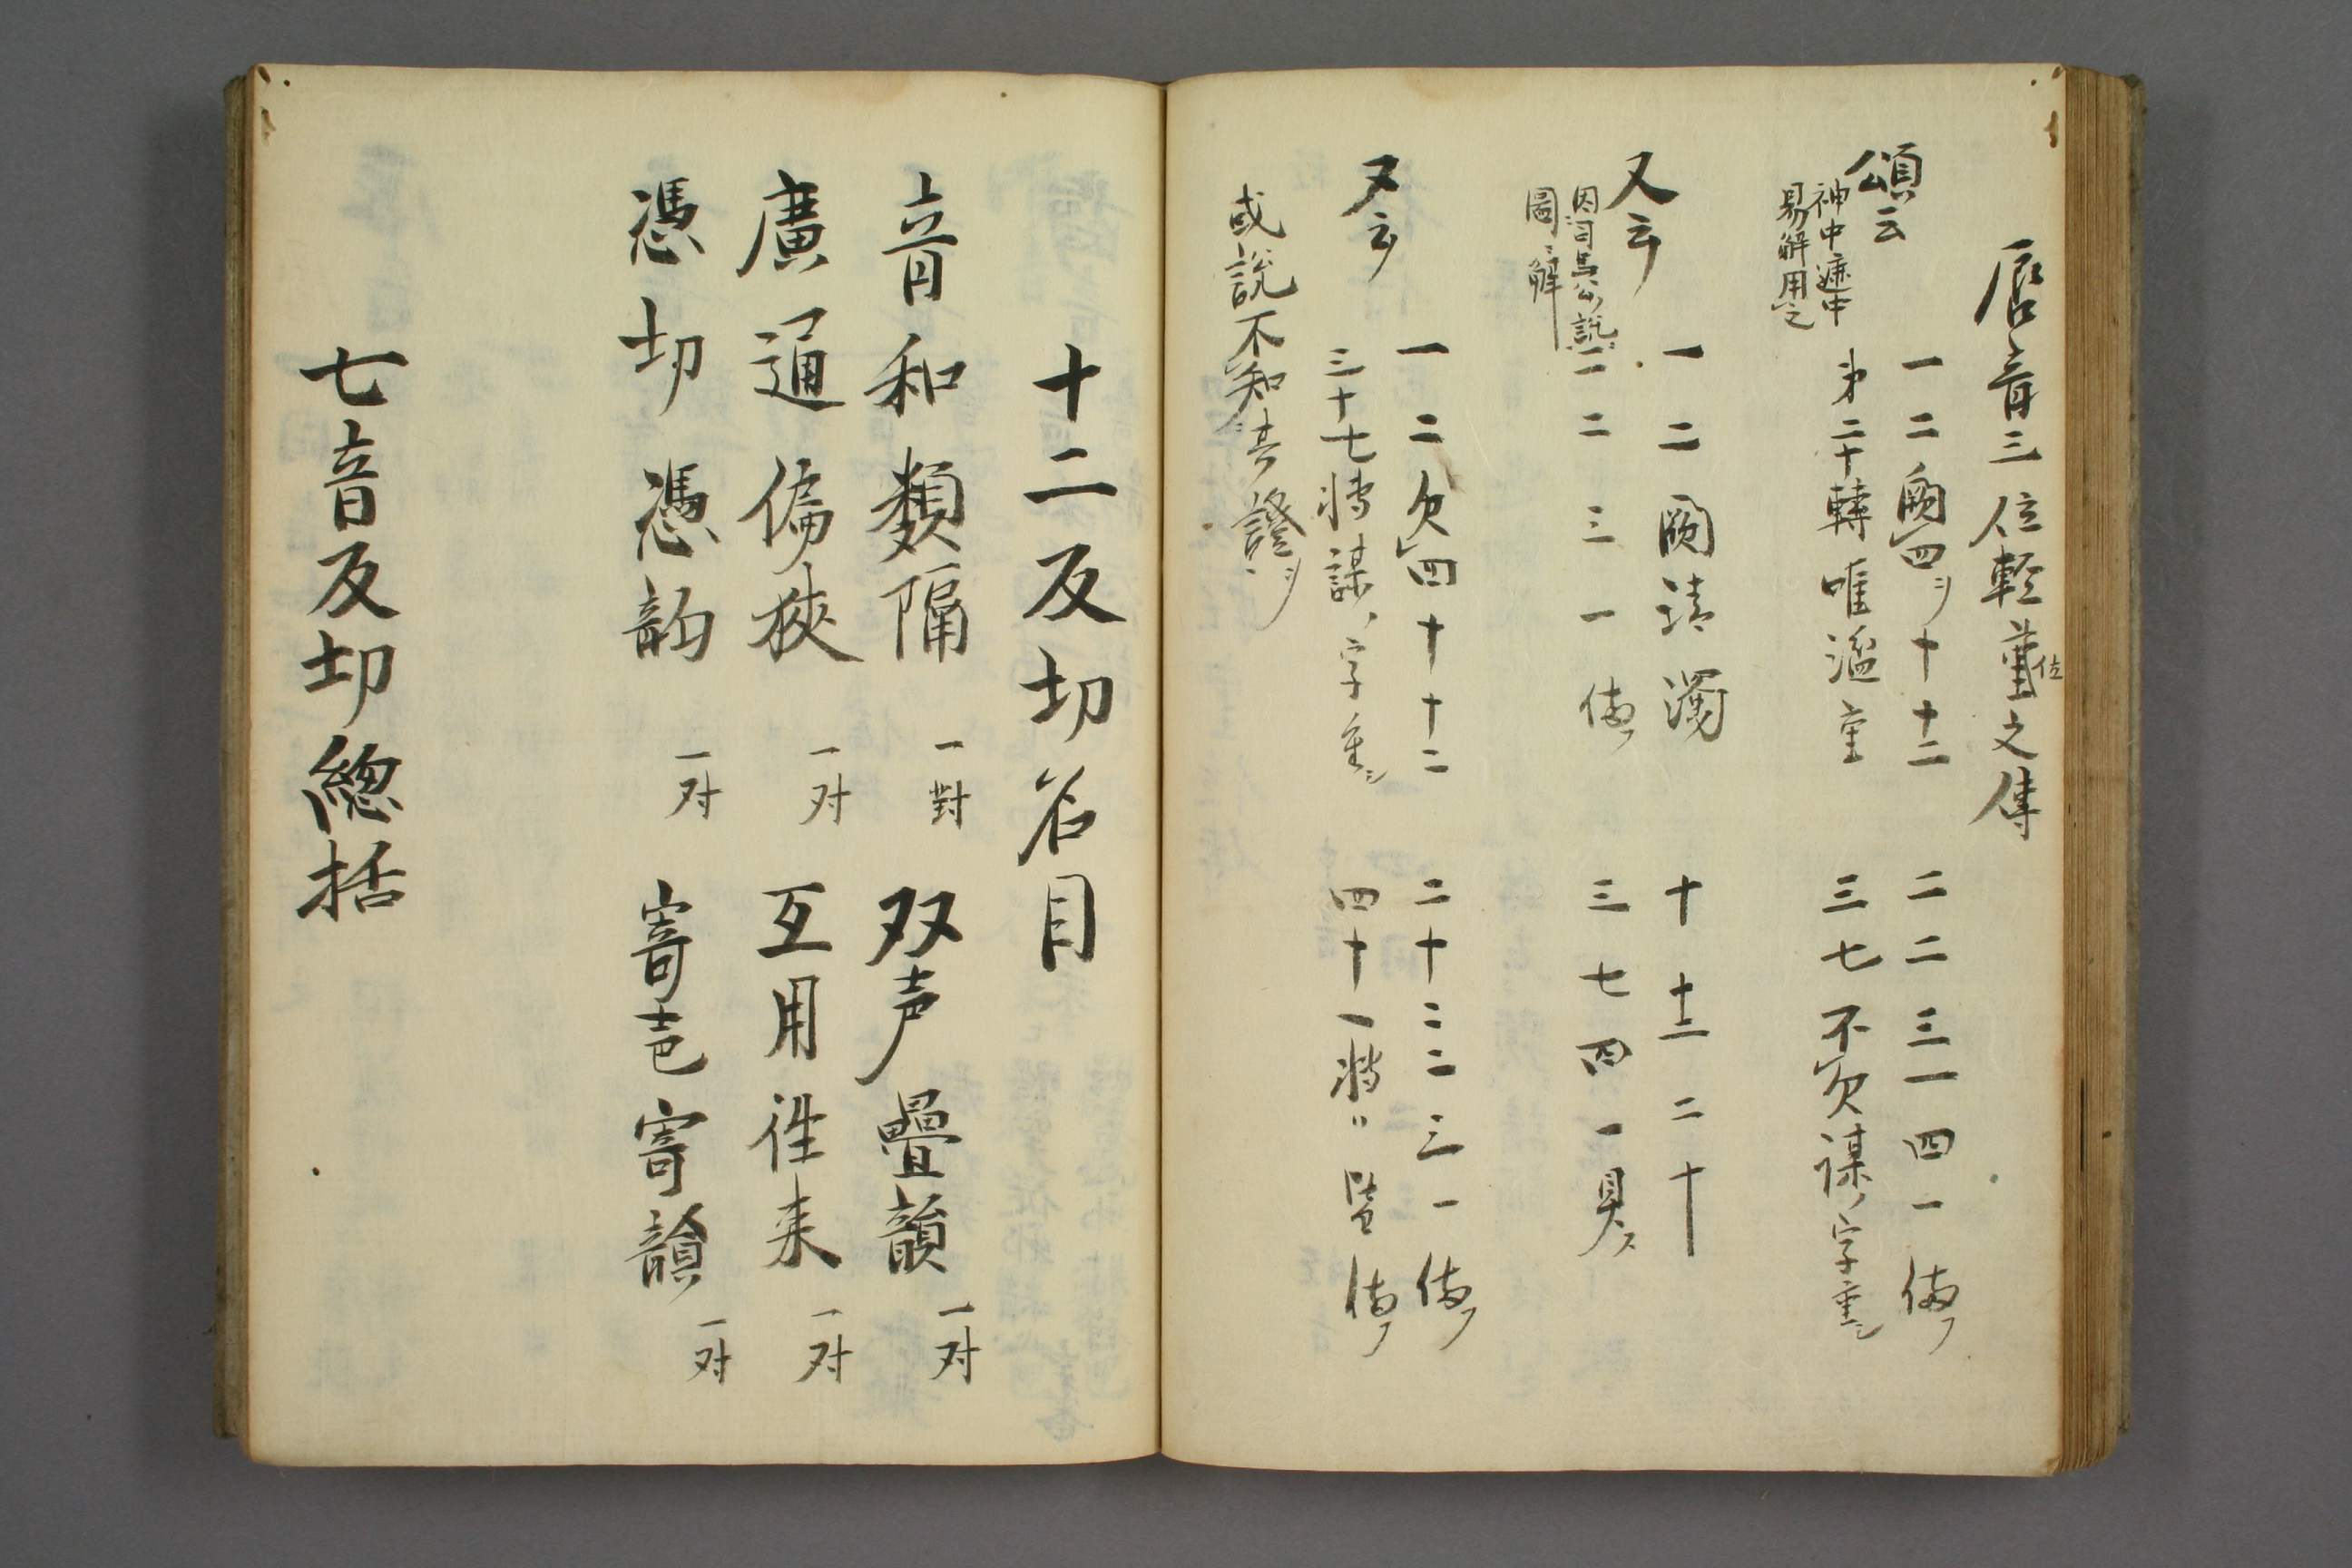 唇音三位軽重位之傳
頌云
神中
易解用之
一二闕四リ十十二 二二三一四一備ノ
才二十轉唯濫重 三七不欠謀ノ字重シ
又云
因司馬公説ニ
圖ニ解
一二闕清濁 十十二二十
一二三一備ノ 三七四一具ス
又云
一二欠四十十二 二十二二三一備ノ
三十七轉謀ノ字重シ 四十一轉ニ皆備ノ
或説不知其證ヲ
十二反切名目
音和類隔 一對 双声疊韻 一对
廣通偏狹 一对 互用徃来 一对
憑切憑韵 一对 寄声寄韻 一对
七音反切総括